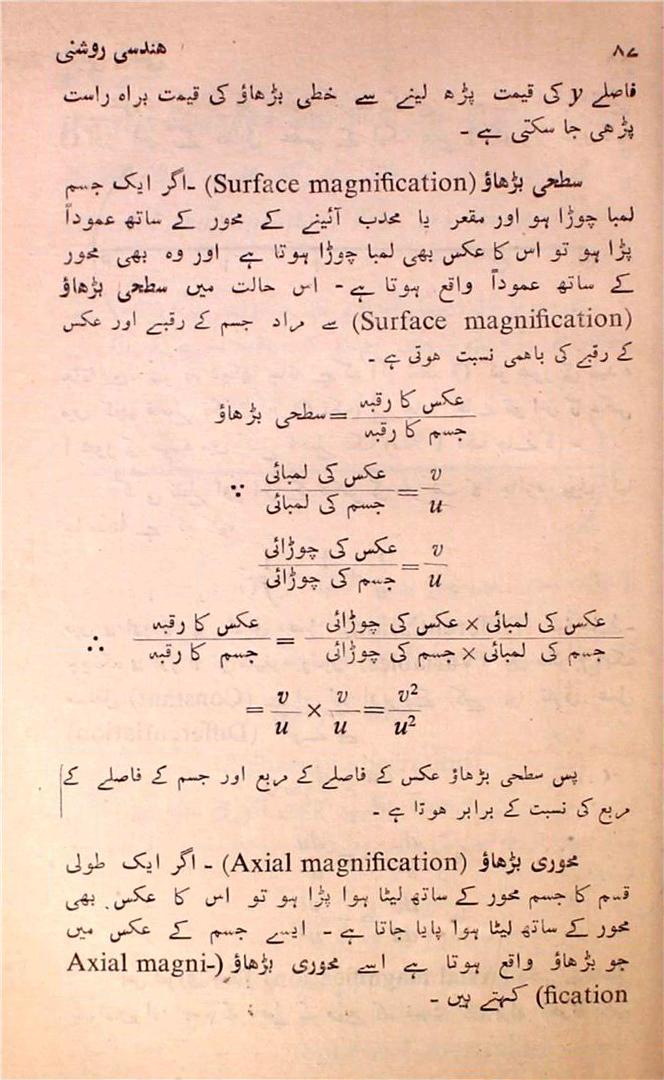 ۸۷ هندسی روشنی
فاصلے y کی قیمت پڑھ لینے سے خطی بڑھاؤ کی قیمت براہ راست
پڑھی جا سکتی ہے -
سطحی بڑھاؤ (Surface magnification) - اگر ایک جسم
لمبا چوڑا ہو اور مقعر یا محدب آئینے کے محور کے ساتھ عموداً
پڑا ہو تو اس کا عکس بھی لمبا چوڑا ہوتا ہے اور وہ بھی محور
کے ساتھ عموداً واقع ہوتا ہے - اس حالت میں سطحی بڑھاؤ
(Surface magnification) سے مراد جسم کے رقبے اور عکس
کے رقبے کی باہمی نسبت ہوتی ہے -
سطحی بڑھاؤ = عکس کا رقبہ / جسم کا رقبہ
∵ عکس کی لمبائی / جسم کی لمبائی = v / u
عکس کی چوڑائی / جسم کی چوڑائی = v / u
∴ عکس کا رقبہ / جسم کا رقبہ = عکس کی لمبائی × عکس کی چوڑائی / جسم کی لمبائی × جسم کی چوڑائی
= v / u × v / u = v² / u²
پس سطحی بڑھاؤ عکس کے فاصلے کے مربع اور جسم کے فاصلے کے
مربع کی نسبت کے برابر ہوتا ہے -
محوری بڑھاؤ (Axial magnification) - اگر ایک طولی
قسم کا جسم محور کے ساتھ لیٹا ہوا پڑا ہو تو اس کا عکس بھی
محور کے ساتھ لیٹا ہوا پایا جاتا ہے - ایسے جسم کے عکس میں
جو بڑھاؤ واقع ہوتا ہے اسے محوری بڑھاؤ (Axial magni-
fication) کہتے ہیں -